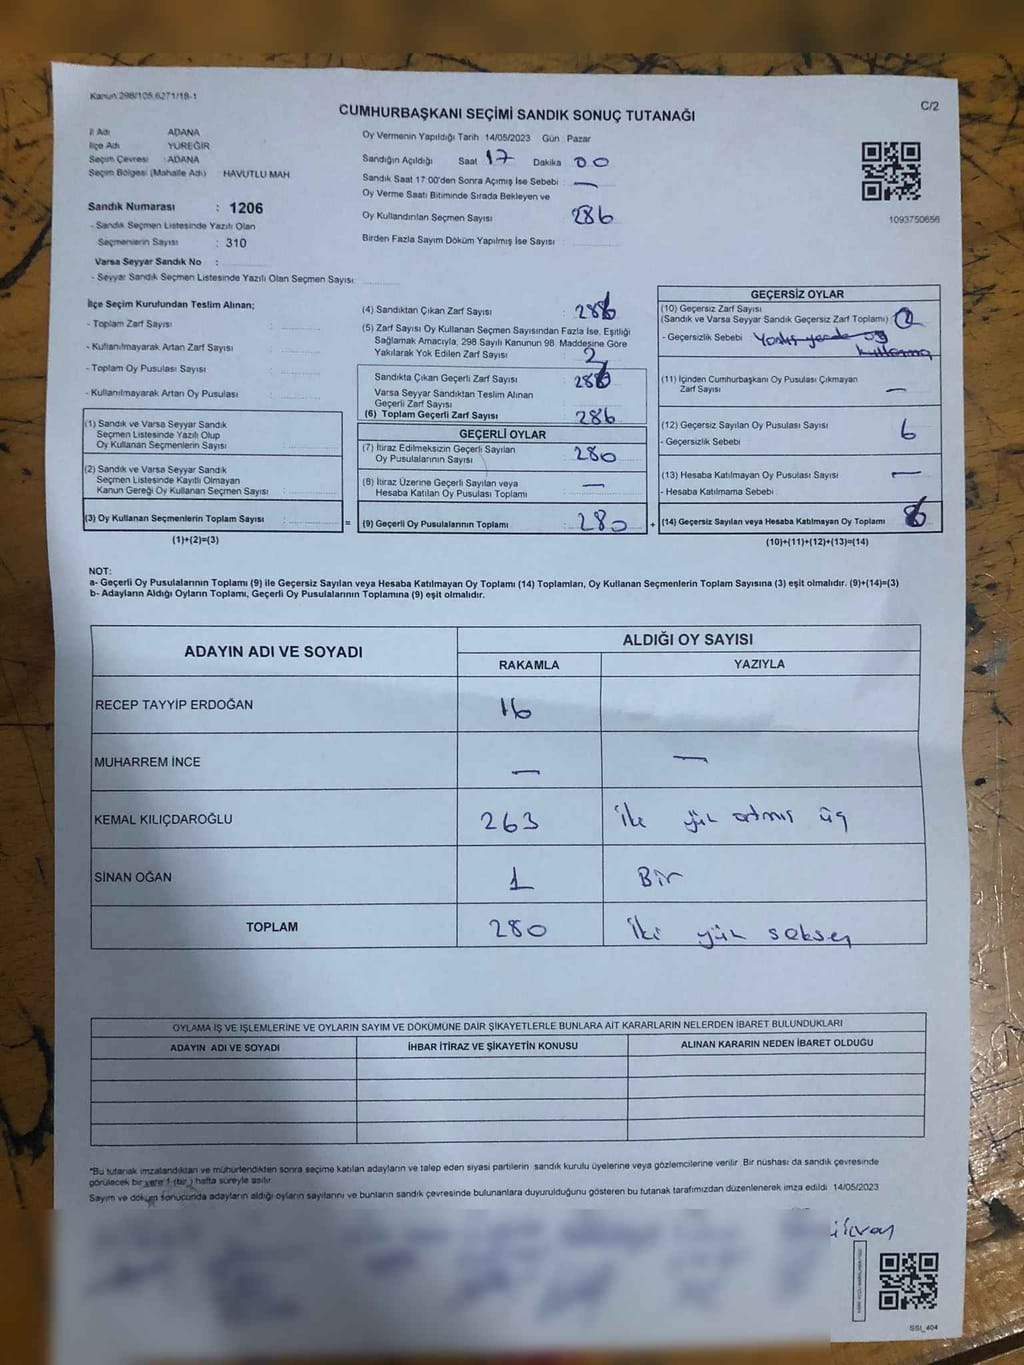 Kanun:298/105,6271/18-1
C/2
CUMHURBAŞKANI SEÇİMİ SANDIK SONUÇ TUTANAĞI
İl Adı ADANA
İlçe Adı YÜREĞİR
Seçim Çevresi : ADANA
Seçim Bölgesi (Mahalle Adı) HAVUTLU MAH
Sandık Numarası : 1206
- Sandık Seçmen Listesinde Yazılı Olan
Seçmenlerin Sayısı : 310
Varsa Seyyar Sandık No :
- Seyyar Sandık Seçmen Listesinde Yazılı Olan Seçmen Sayısı:
Oy Vermenin Yapıldığı Tarih 14/05/2023 Gün Pazar
Sandığın Açıldığı Saat 17 Dakika 00
Sandık Saat 17:00'den Sonra Açımış İse Sebebi : —
Oy Verme Saati Bitiminde Sırada Bekleyen ve
Oy Kullandırılan Seçmen Sayısı 286
Birden Fazla Sayım Döküm Yapılmış İse Sayısı
1093750656
İlçe Seçim Kurulundan Teslim Alınan;
- Toplam Zarf Sayısı :
- Kullanılmayarak Artan Zarf Sayısı :
- Toplam Oy Pusulası Sayısı :
- Kullanılmayarak Artan Oy Pusulası
(1) Sandık ve Varsa Seyyar Sandık
Seçmen Listesinde Yazılı Olup
Oy Kullanan Seçmenlerin Sayısı :
(2) Sandık ve Varsa Seyyar Sandık
Seçmen Listesinde Kayıtlı Olmayan
Kanun Gereği Oy Kullanan Seçmen Sayısı :
(3) Oy Kullanan Seçmenlerin Toplam Sayısı : =
(1)+(2)=(3)
(4) Sandıktan Çıkan Zarf Sayısı : 286
(5) Zarf Sayısı Oy Kullanan Seçmen Sayısından Fazla İse, Eşitliği
Sağlamak Amacıyla, 298 Sayılı Kanunun 98. Maddesine Göre
Yakılarak Yok Edilen Zarf Sayısı : 2
Sandıkta Çıkan Geçerli Zarf Sayısı : 286
Varsa Seyyar Sandıktan Teslim Alınan
Geçerli Zarf Sayısı :
(6) Toplam Geçerli Zarf Sayısı : 286
GEÇERLİ OYLAR
(7) İtiraz Edilmeksizin Geçerli Sayılan
Oy Pusulalarının Sayısı : 280
(8) İtiraz Üzerine Geçerli Sayılan veya
Hesaba Katılan Oy Pusulası Toplamı : —
(9) Geçerli Oy Pusulalarının Toplamı : 280 +
GEÇERSİZ OYLAR
(10) Geçersiz Zarf Sayısı
(Sandık ve Varsa Seyyar Sandık Geçersiz Zarf Toplamı) : 2
- Geçersizlik Sebebi : Yanlış yerde oy
kullanma
(11) İçinden Cumhurbaşkanı Oy Pusulası Çıkmayan
Zarf Sayısı : —
(12) Geçersiz Sayılan Oy Pusulası Sayısı : 6
- Geçersizlik Sebebi :
(13) Hesaba Katılmayan Oy Pusulası Sayısı : —
- Hesaba Katılmama Sebebi :
(14) Geçersiz Sayılan veya Hesaba Katılmayan Oy Toplamı 6
(10)+(11)+(12)+(13)=(14)
NOT:
a- Geçerli Oy Pusulalarının Toplamı (9) ile Geçersiz Sayılan veya Hesaba Katılmayan Oy Toplamı (14) Toplamları, Oy Kullanan Seçmenlerin Toplam Sayısına (3) eşit olmalıdır. (9)+(14)=(3)
b- Adayların Aldığı Oyların Toplamı, Geçerli Oy Pusulalarının Toplamına (9) eşit olmalıdır.
ADAYIN ADI VE SOYADI ALDIĞI OY SAYISI
RAKAMLA YAZIYLA
RECEP TAYYİP ERDOĞAN 16
MUHARREM İNCE — —
KEMAL KILIÇDAROĞLU 263 İki yüz atmış üç
SİNAN OĞAN 1 Bir
TOPLAM 280 İki yüz seksen
OYLAMA İŞ VE İŞLEMLERİNE VE OYLARIN SAYIM VE DÖKÜMÜNE DAİR ŞİKAYETLERLE BUNLARA AİT KARARLARIN NELERDEN İBARET BULUNDUKLARI
ADAYIN ADI VE SOYADI İHBAR İTİRAZ VE ŞİKAYETİN KONUSU ALINAN KARARIN NEDEN İBARET OLDUĞU
*Bu tutanak imzalandıktan ve mühürlendikten sonra seçime katılan adayların ve talep eden siyasi partilerin sandık kurulu üyelerine veya gözlemcilerine verilir. Bir nüshası da sandık çevresinde
görülecek bir yere 1 (bir ) hafta süreyle asılır.
Sayım ve döküm sonucunda adayların aldığı oyların sayılarını ve bunların sandık çevresinde bulunanlara duyurulduğunu gösteren bu tutanak tarafımızdan düzenlenerek imza edildi. 14/05/2023
SSI_404